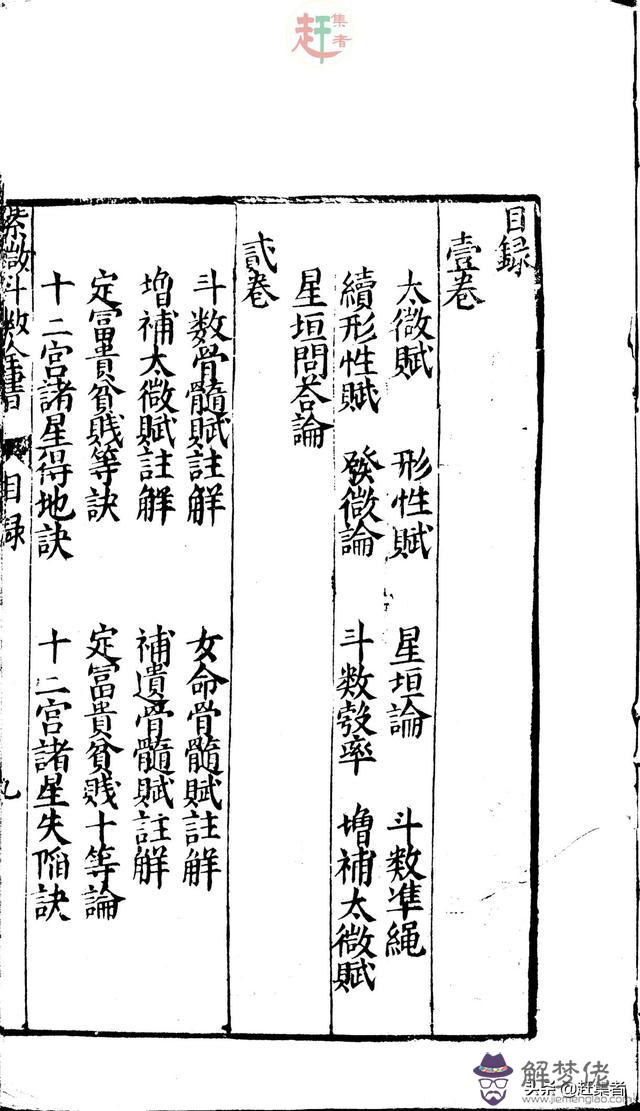 赶集者
目録
壹卷
太微賦 形性賦 星垣論 斗数準繩
續形性賦 發微論 斗数彀率 增補太微賦
星垣問荅論
貳卷
斗数骨髓賦註解 女命骨髓賦註解
增補太微賦註解 補遺骨髓賦註解
定冨貴貧贱等訣 定冨貴貧贱十等論
十二宫諸星得地訣 十二宫諸星失陷訣
紫微斗数全書 目録 九
解梦佬
www.jiemenglao.com
头条@赶集者